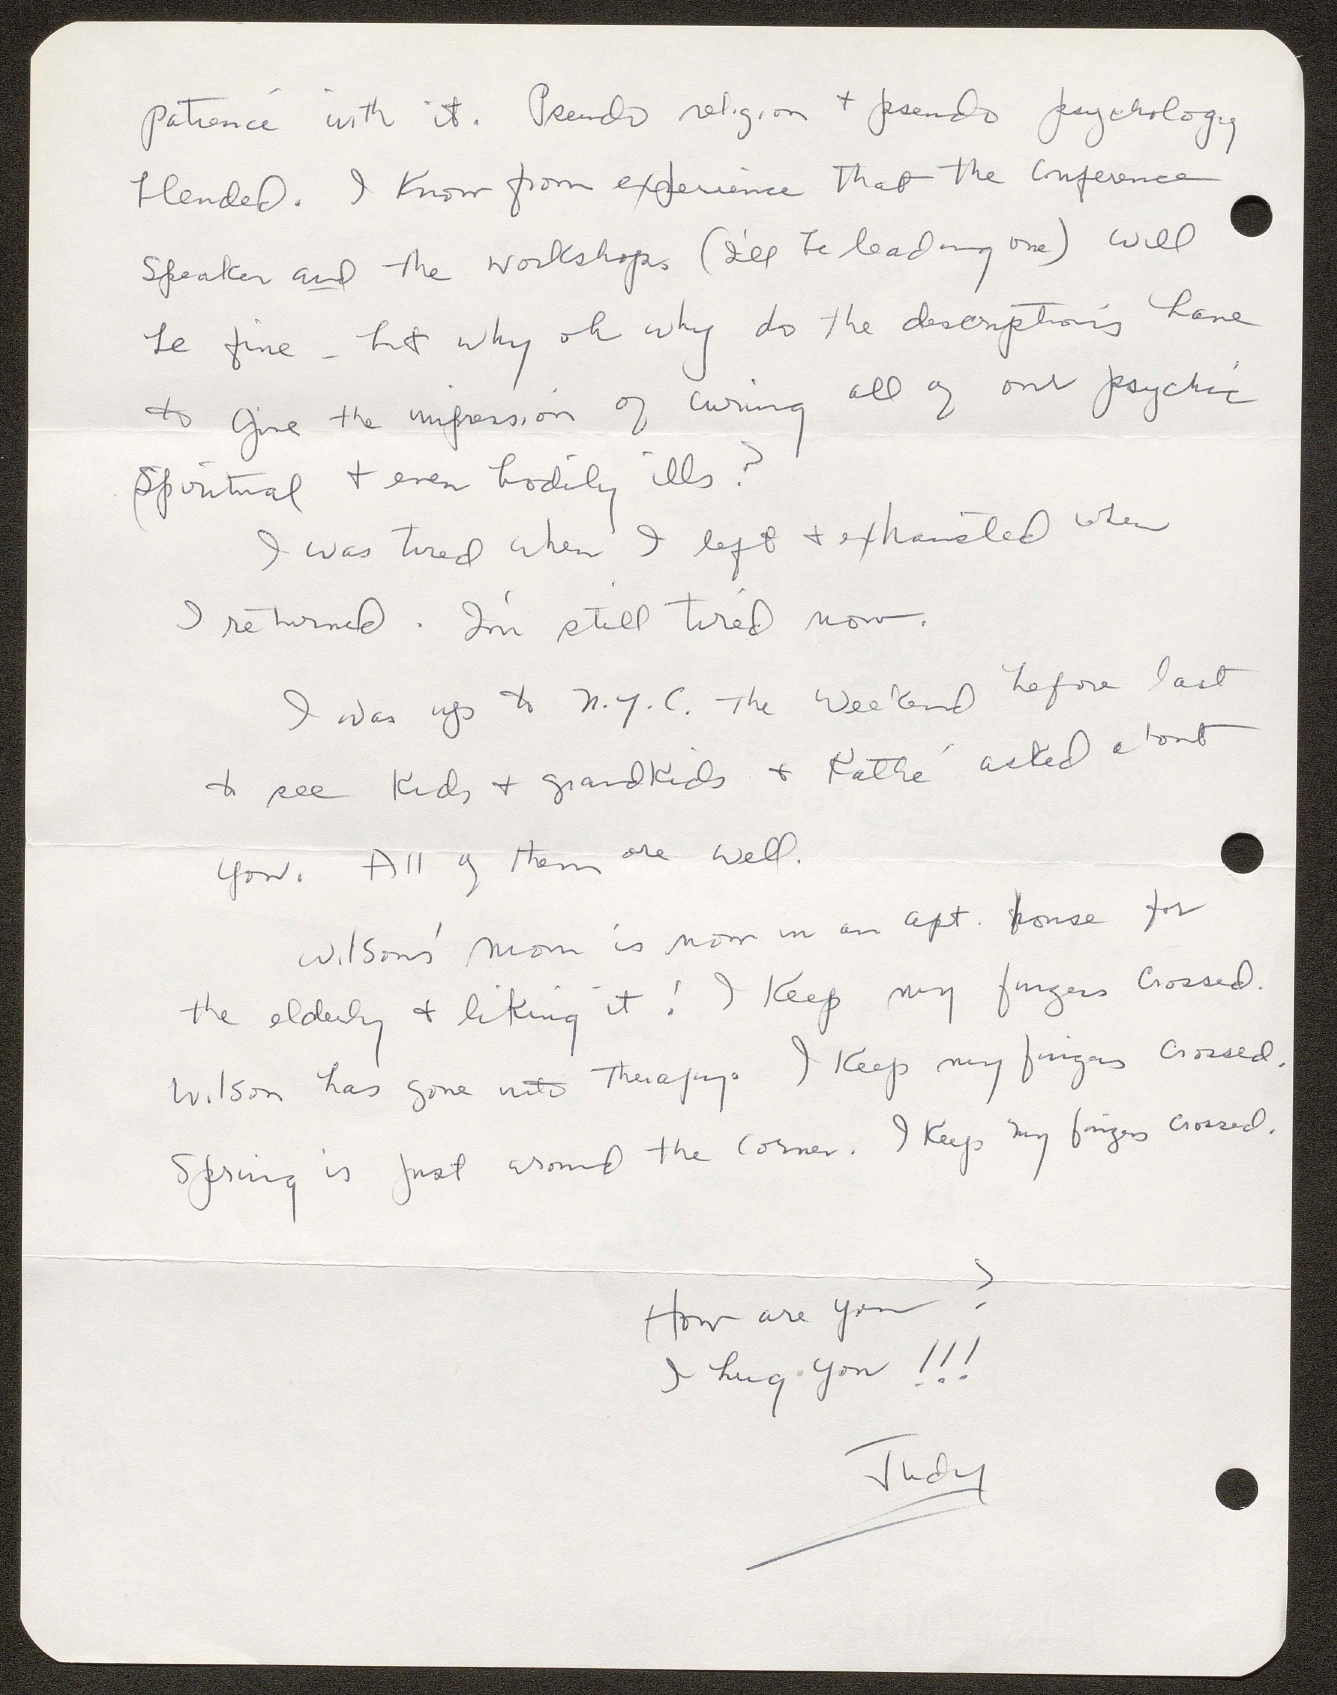 patience with it. Pseudo religion + pseudo psychology
blended. I know from experience that the conference
speaker and the workshops (I'll be leading one) will
be fine - but why oh why do the descriptions have
to give the impression of curing all of our psychic
spiritual + even bodily ills?
I was tired when I left + exhausted when
I returned. I'm still tired now.
I was up to N.Y.C. the weekend before last
to see kids + grandkids + Kathe asked about
you. All of them are well.
Wilson's mom is now in an apt. house for
the elderly + liking it! I keep my fingers crossed.
Wilson has gone into therapy. I keep my fingers crossed.
Spring is just around the corner. I keep my fingers crossed.
How are you?
I hug you!!!
Judy